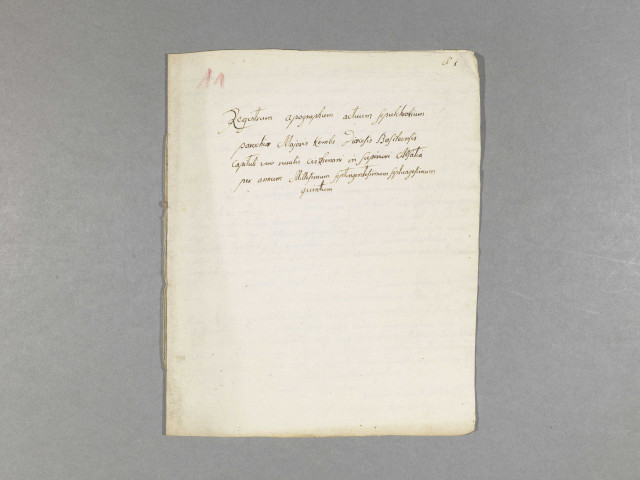 11
Registrum apographum actuum sepulchralium
parochiæ Majoris Kembs Diœcesis Basileensis
Capituli ruralis in superiori Alsatia
per annum Millesimum septingentesimum septuagesimum
quintum